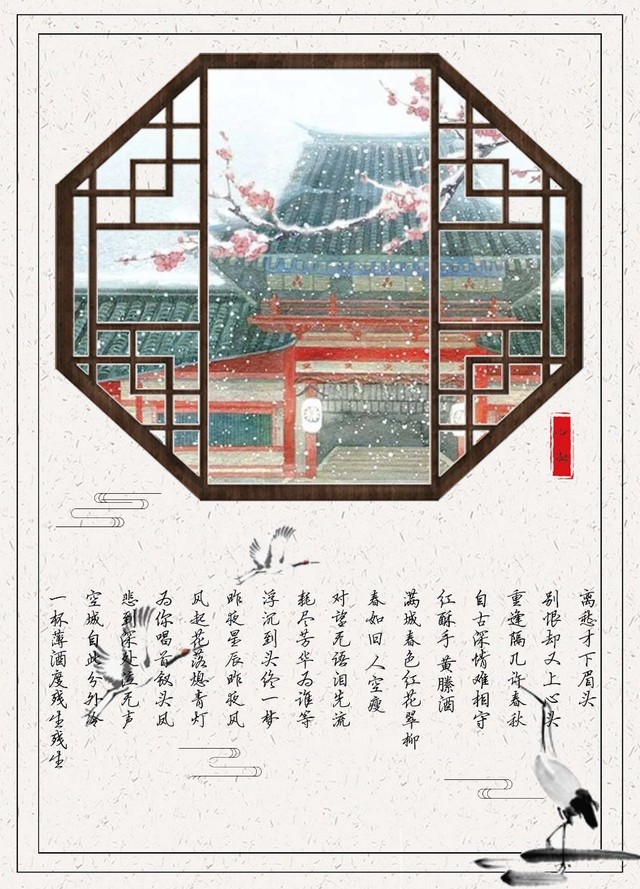 离愁才下眉头
别恨却又上心头
重逢隔几许春秋
自古深情难相守
红酥手 黄滕酒
满城春色红花翠柳
春如旧 人空瘦
对望无语泪先流
耗尽芳华为谁等
浮沉到头终一梦
昨夜星辰昨夜风
风起花落熄青灯
为你唱首钗头凤
悲到深处泣无声
空城自此分外冷
一杯薄酒度残生残生